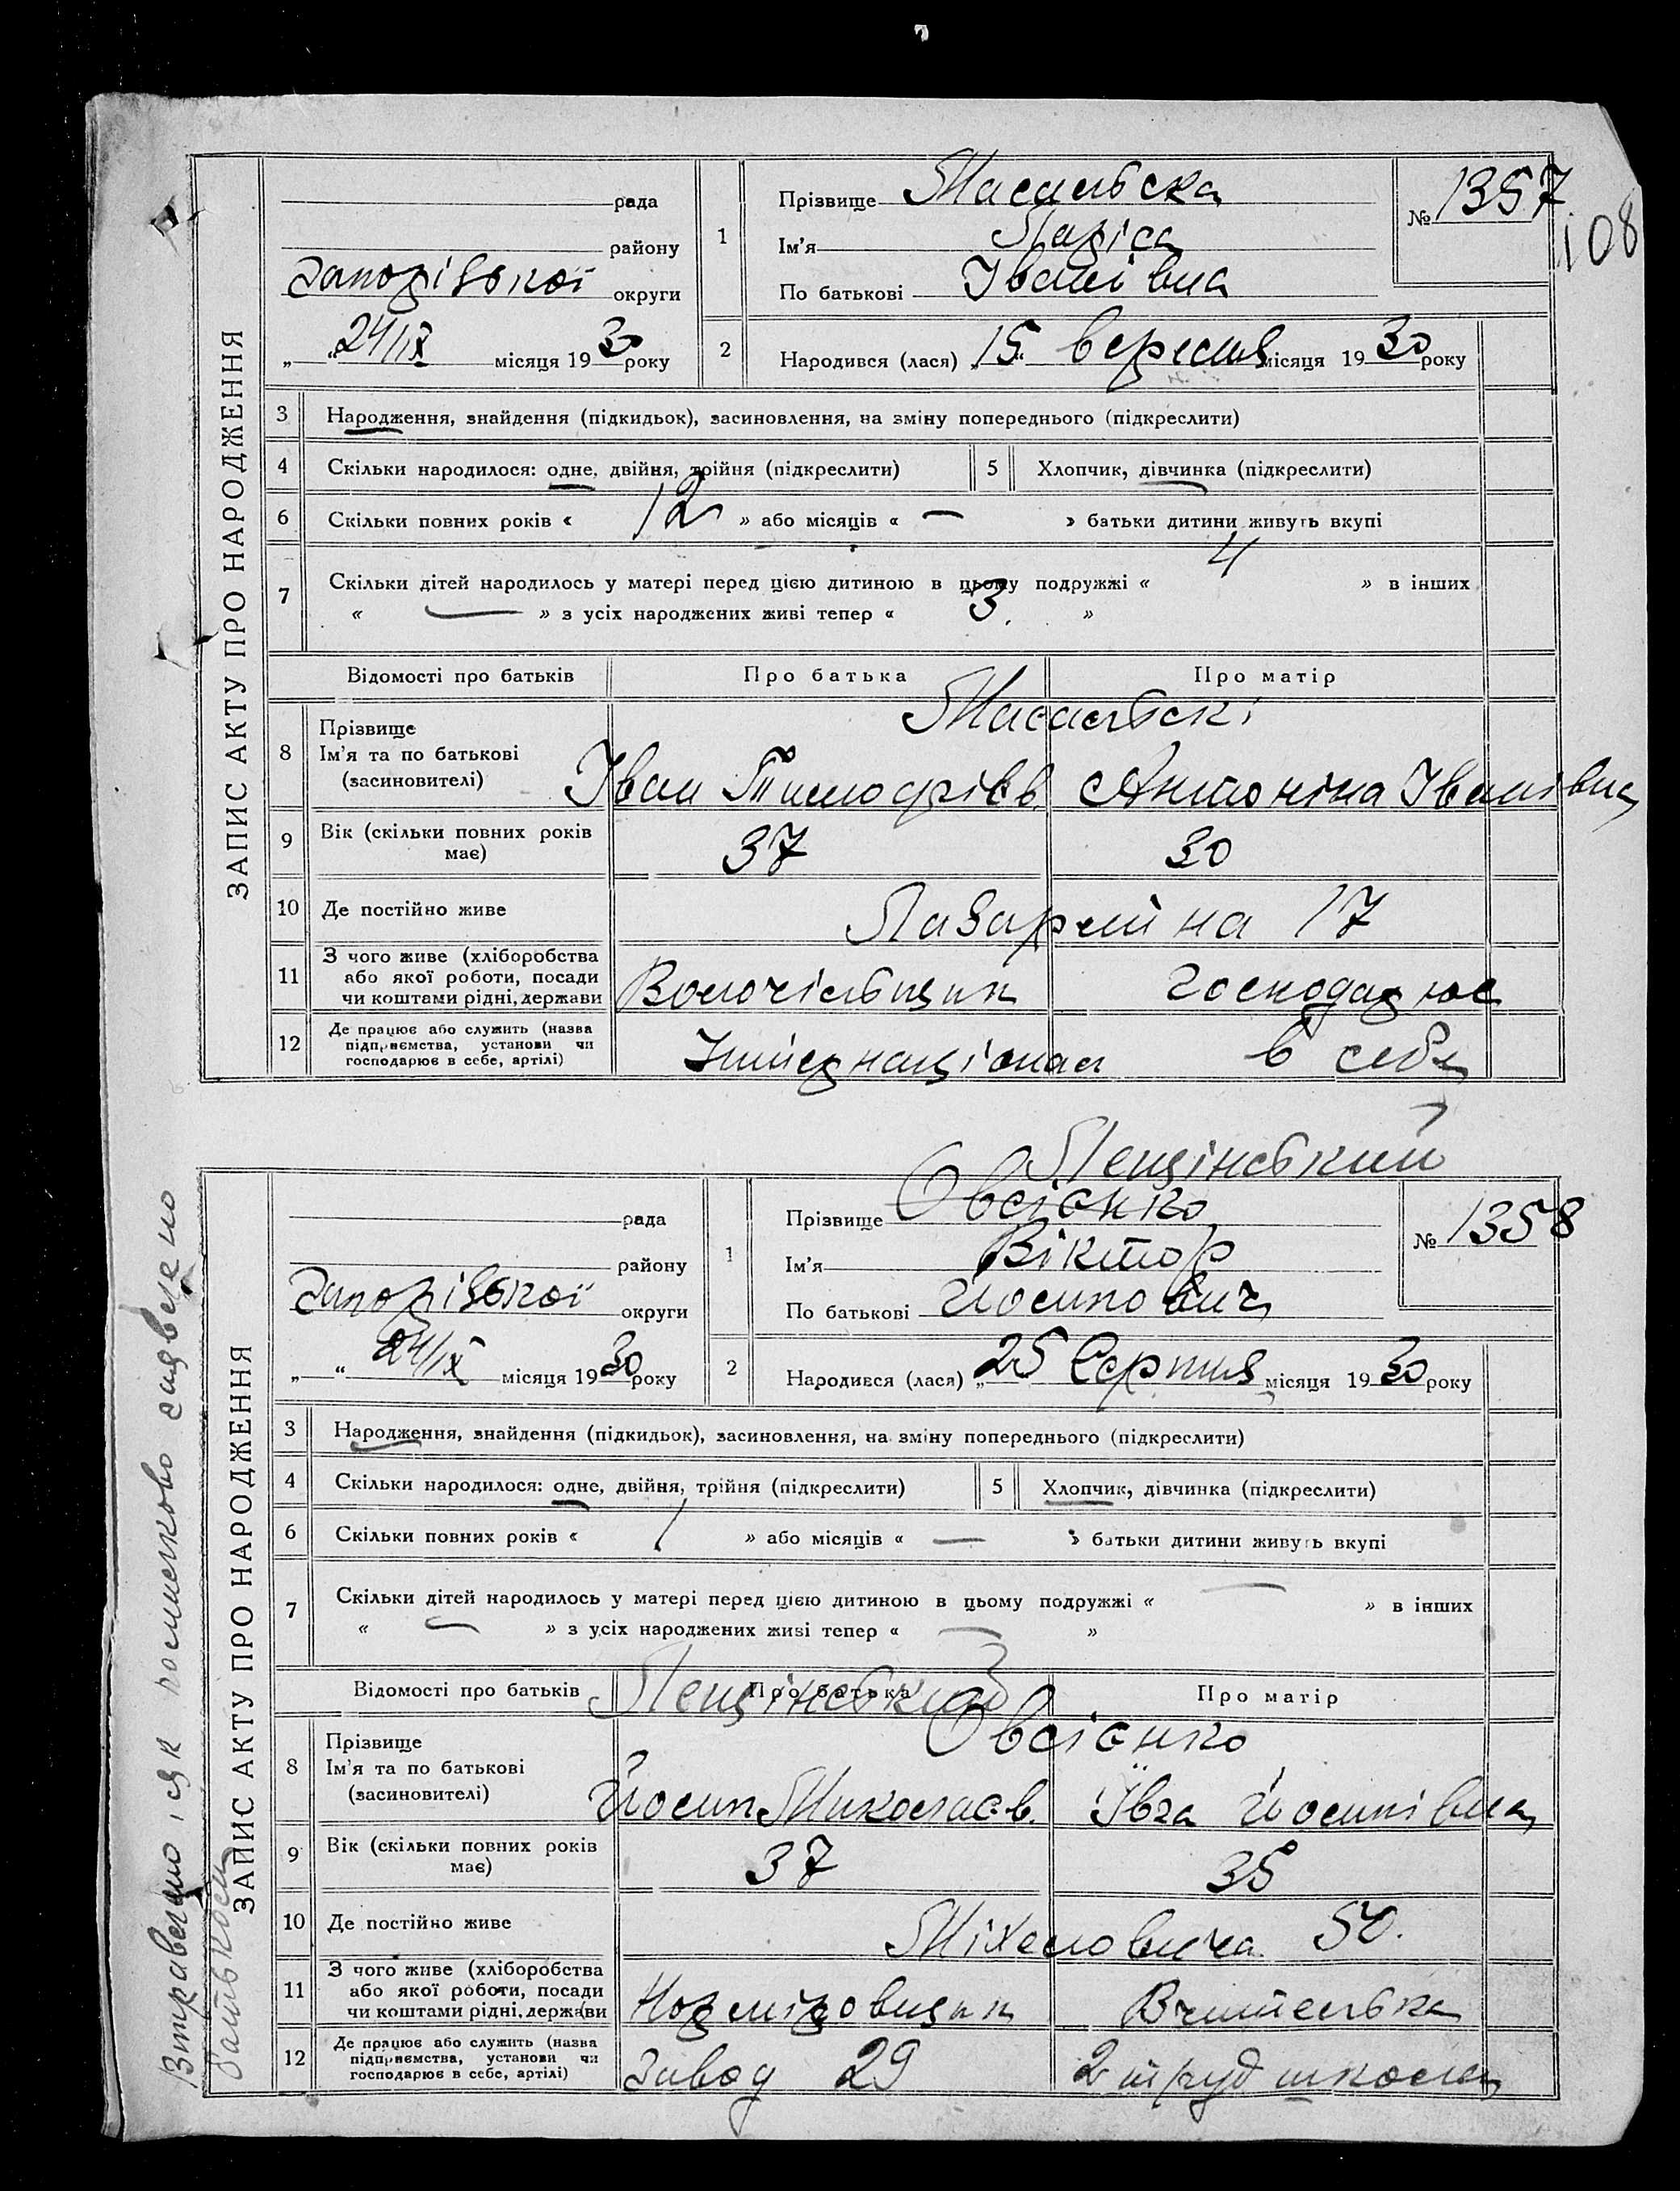 108
ЗАПИС АКТУ ПРО НАРОДЖЕННЯ
рада
району
Запорізької округи
„ “ 24/IX місяця 1930 року
1 Прізвище Масальска
Ім'я Лариса
По батькові Іванівна
№ 1357
2 Народився (лася) „15“ вересня місяця 1930 року
3 Народження, знайдення (підкидьок), засиновлення, на зміну попереднього (підкреслити)
4 Скільки народилося: одне, двійня, трійня (підкреслити) 5 Хлопчик, дівчинка (підкреслити)
6 Скільки повних років « 12 » або місяців « — » батьки дитини живуть вкупі
7 Скільки дітей народилось у матері перед цією дитиною в цьому подружжі « 4 » в інших
« — » з усіх народжених живі тепер « 3 »
Відомості про батьків Про батька Про матір
8 Прізвище
Ім'я та по батькові
(засиновителі)
Масальскі
Іван Тимофієв. Антоніна Іванівна
9 Вік (скільки повних років має) 37 30
10 Де постійно живе Лазаретна 17
11 З чого живе (хліборобства або якої роботи, посади чи коштами рідні, держави
Волочільщик Господарює
12 Де працює або служить (назва підприємства, установи чи господарює в себе, артілі)
Інтернаціонал в себе
ЗАПИС АКТУ ПРО НАРОДЖЕННЯ
рада
району
Запорізької округи
„ “ 24/IX місяця 1930 року
Лещінський
1 Прізвище Овсієнко
Ім'я Віктор
По батькові Йосипович
№ 1358
2 Народився (лася) „25 Серпня місяця 1930 року
3 Народження, знайдення (підкидьок), засиновлення, на зміну попереднього (підкреслити)
4 Скільки народилося: одне, двійня, трійня (підкреслити) 5 Хлопчик, дівчинка (підкреслити)
6 Скільки повних років « 1 » або місяців « — » батьки дитини живуть вкупі
7 Скільки дітей народилось у матері перед цією дитиною в цьому подружжі « — » в інших
« — » з усіх народжених живі тепер « — »
Відомості про батьків Про батька Про матір
8 Прізвище
Ім'я та по батькові
(засиновителі)
Лещінський
Овсієнко
Йосип Миколаєв. Ївга Йосипівна
9 Вік (скільки повних років має) 37 35
10 Де постійно живе Міхеловича 50.
11 З чого живе (хліборобства або якої роботи, посади чи коштами рідні, держави
Норміровщик Вчителька
12 Де працює або служить (назва підприємства, установи чи господарює в себе, артілі)
Завод 29 2 труд школи
Втравлено, як помилково
батьком